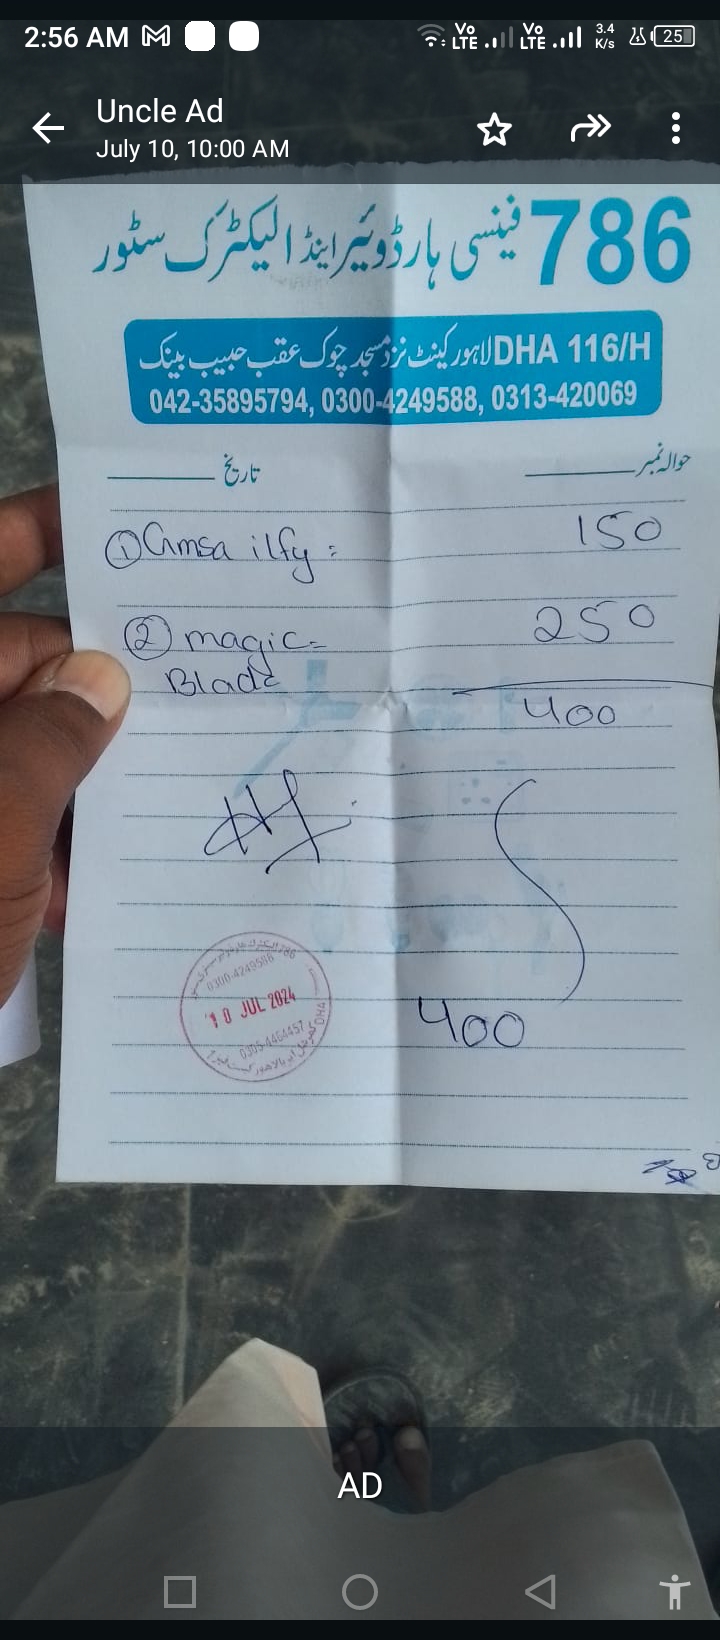 2:56 AM
Vo LTE Vo LTE 3.4 K/s 25
Uncle Ad
July 10, 10:00 AM
786 فینسی ہارڈوئیر اینڈ الیکٹرک سٹور
DHA 116/H لاہور کینٹ نزد مسجد چوک عقب حبیب بینک
042-35895794, 0300-4249588, 0313-420069
حوالہ نمبر تاریخ
① Gmsa ilfy = 150
② magic = 250
Blade
400
0300-4249588
10 JUL 2024
DHA
0305-4464457
400
AD